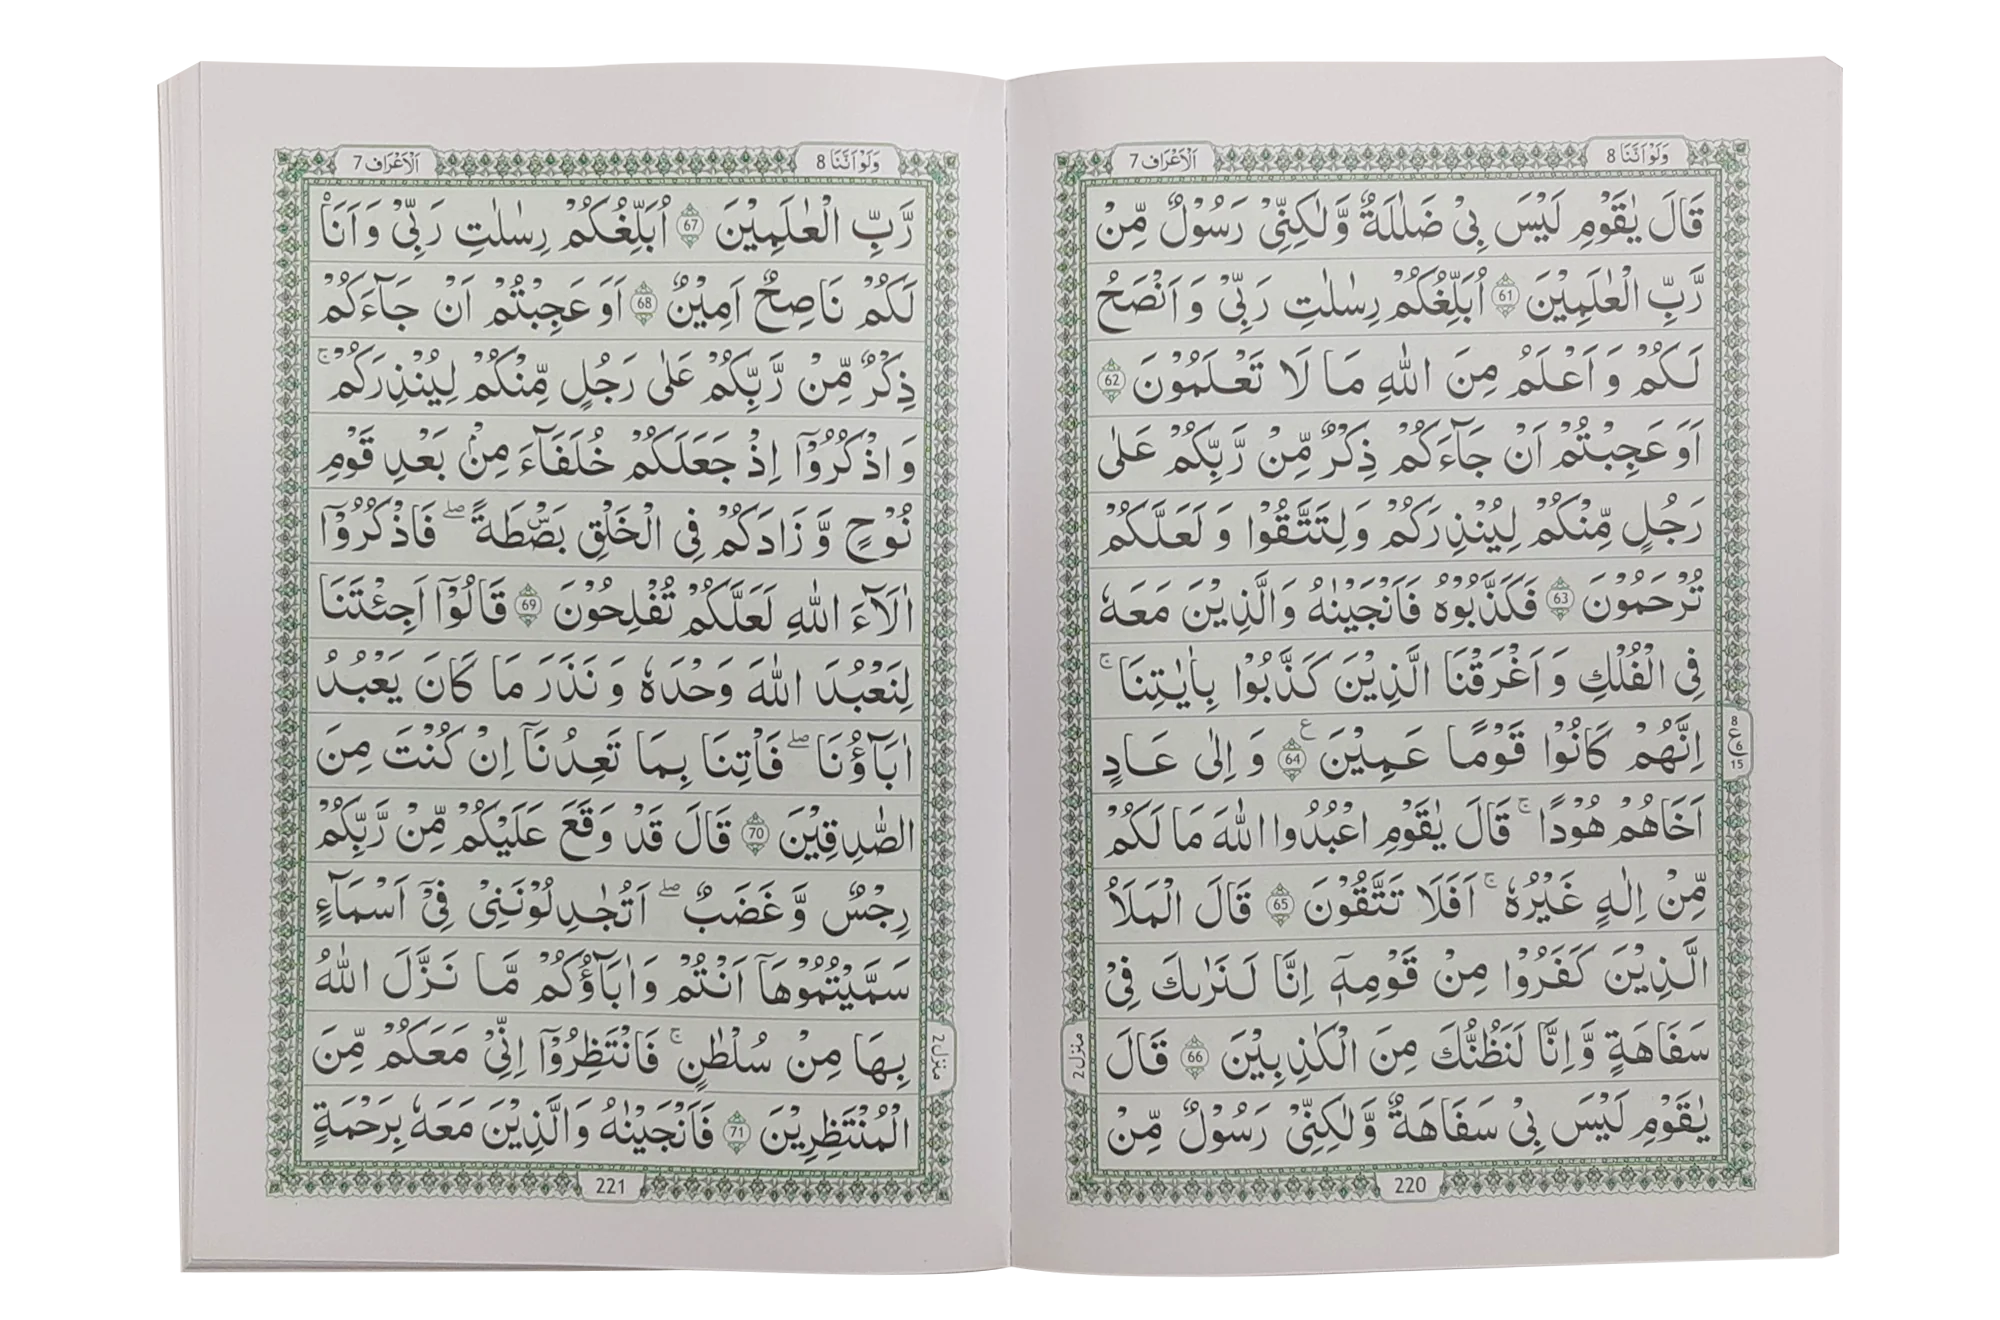 وَلَوْ اَنَّنَا 8
اَلْاَعْرَاف 7
قَالَ يٰقَوْمِ لَيْسَ بِيْ ضَلٰلَةٌ وَّلٰكِنِّيْ رَسُوْلٌ مِّنْ
رَّبِّ الْعٰلَمِيْنَ 61 اُبَلِّغُكُمْ رِسٰلٰتِ رَبِّيْ وَاَنْصَحُ
لَكُمْ وَاَعْلَمُ مِنَ اللّٰهِ مَا لَا تَعْلَمُوْنَ 62
اَوَعَجِبْتُمْ اَنْ جَآءَكُمْ ذِكْرٌ مِّنْ رَّبِّكُمْ عَلٰى
رَجُلٍ مِّنْكُمْ لِيُنْذِرَكُمْ وَلِتَتَّقُوْا وَلَعَلَّكُمْ
تُرْحَمُوْنَ 63 فَكَذَّبُوْهُ فَاَنْجَيْنٰهُ وَالَّذِيْنَ مَعَهٗ
فِي الْفُلْكِ وَاَغْرَقْنَا الَّذِيْنَ كَذَّبُوْا بِاٰيٰتِنَا ۚ
اِنَّهُمْ كَانُوْا قَوْمًا عَمِيْنَ 64 ع وَاِلٰى عَادٍ
اَخَاهُمْ هُوْدًا ۚ قَالَ يٰقَوْمِ اعْبُدُوا اللّٰهَ مَا لَكُمْ
مِّنْ اِلٰهٍ غَيْرُهٗ ۚ اَفَلَا تَتَّقُوْنَ 65 قَالَ الْمَلَاُ
الَّذِيْنَ كَفَرُوْا مِنْ قَوْمِهٖۤ اِنَّا لَنَرٰىكَ فِيْ
سَفَاهَةٍ وَّاِنَّا لَنَظُنُّكَ مِنَ الْكٰذِبِيْنَ 66 قَالَ
يٰقَوْمِ لَيْسَ بِيْ سَفَاهَةٌ وَّلٰكِنِّيْ رَسُوْلٌ مِّنْ
8
ع 6
15
منزل 2
220
وَلَوْ اَنَّنَا 8
اَلْاَعْرَاف 7
رَّبِّ الْعٰلَمِيْنَ 67 اُبَلِّغُكُمْ رِسٰلٰتِ رَبِّيْ وَاَنَا۠
لَكُمْ نَاصِحٌ اَمِيْنٌ 68 اَوَعَجِبْتُمْ اَنْ جَآءَكُمْ
ذِكْرٌ مِّنْ رَّبِّكُمْ عَلٰى رَجُلٍ مِّنْكُمْ لِيُنْذِرَكُمْ ۚ
وَاذْكُرُوْۤا اِذْ جَعَلَكُمْ خُلَفَآءَ مِنْۢ بَعْدِ قَوْمِ
نُوْحٍ وَّزَادَكُمْ فِي الْخَلْقِ بَصْۜطَةً ۖ فَاذْكُرُوْۤا
اٰلَآءَ اللّٰهِ لَعَلَّكُمْ تُفْلِحُوْنَ 69 قَالُوْۤا اَجِئْتَنَا
لِنَعْبُدَ اللّٰهَ وَحْدَهٗ وَنَذَرَ مَا كَانَ يَعْبُدُ
اٰبَآؤُنَا ۖ فَاْتِنَا بِمَا تَعِدُنَاۤ اِنْ كُنْتَ مِنَ
الصّٰدِقِيْنَ 70 قَالَ قَدْ وَقَعَ عَلَيْكُمْ مِّنْ رَّبِّكُمْ
رِجْسٌ وَّغَضَبٌ ۖ اَتُجَادِلُوْنَنِيْ فِيْۤ اَسْمَآءٍ
سَمَّيْتُمُوْهَاۤ اَنْتُمْ وَاٰبَآؤُكُمْ مَّا نَزَّلَ اللّٰهُ
بِهَا مِنْ سُلْطٰنٍ ۚ فَانْتَظِرُوْۤا اِنِّيْ مَعَكُمْ مِّنَ
الْمُنْتَظِرِيْنَ 71 فَاَنْجَيْنٰهُ وَالَّذِيْنَ مَعَهٗ بِرَحْمَةٍ
منزل 2
221